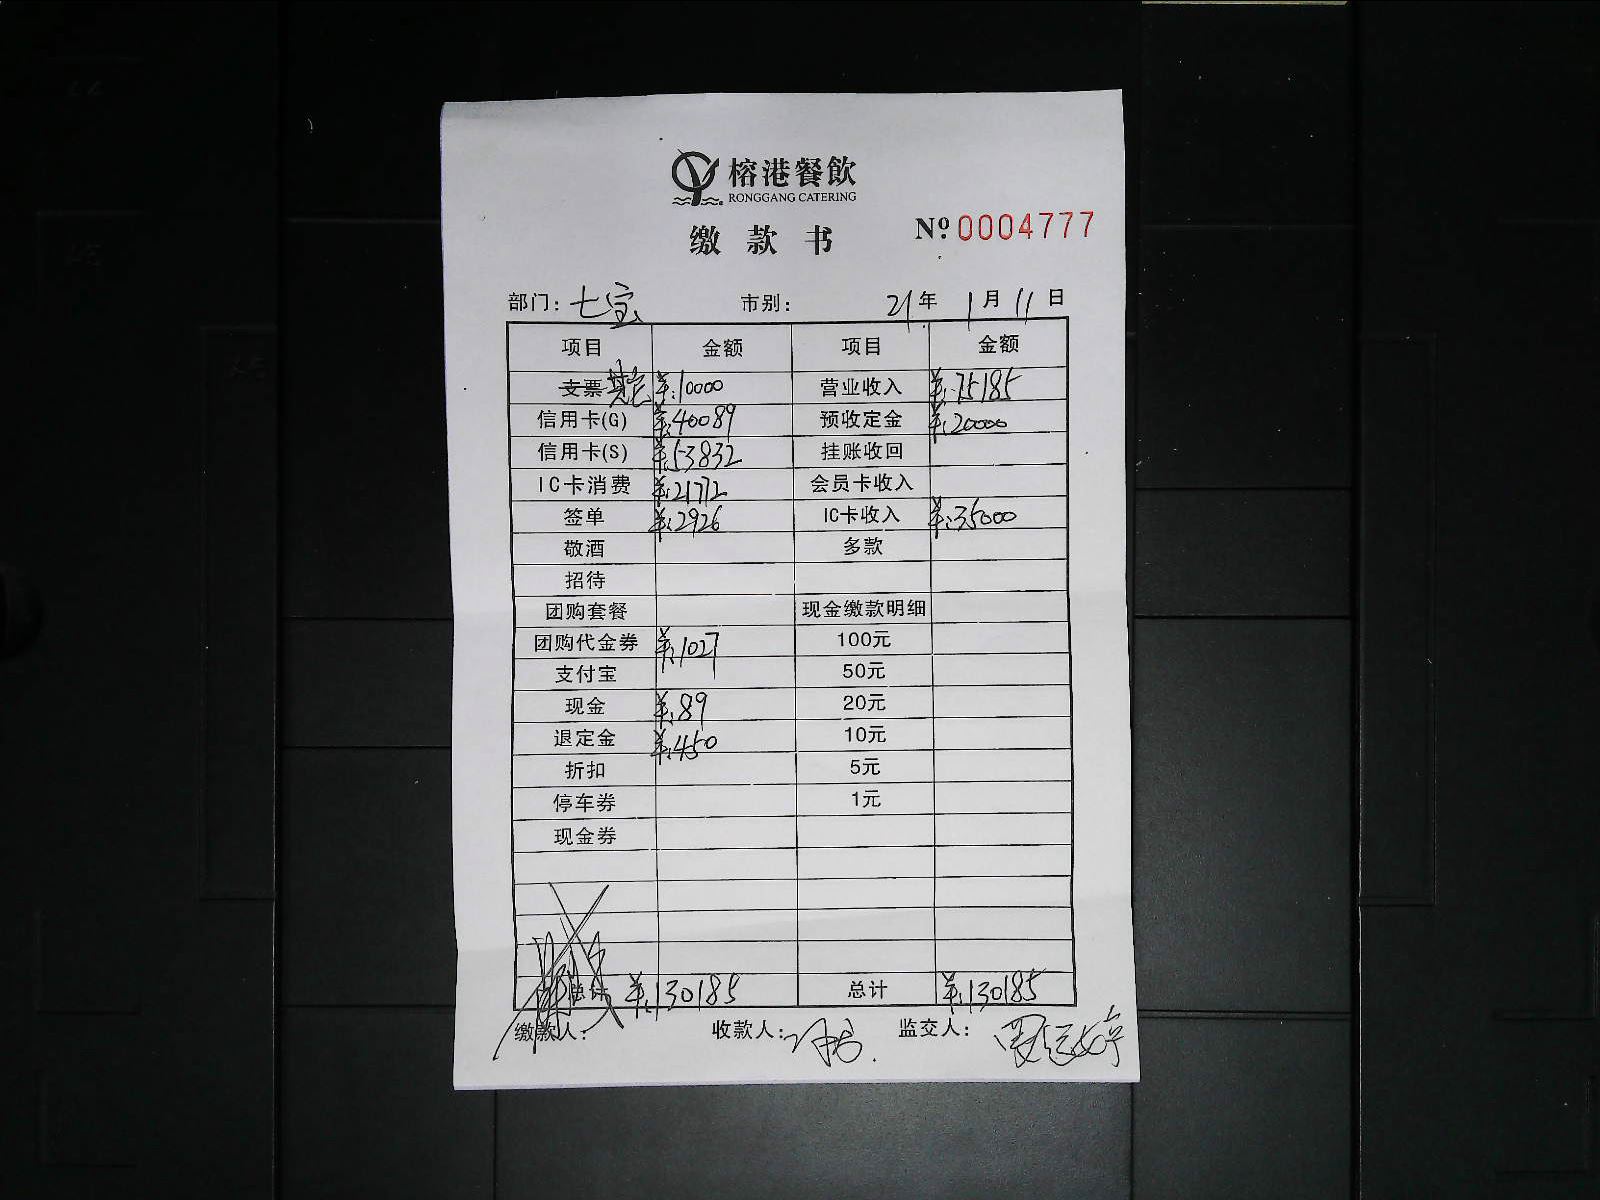 榕港餐飲
RONGGANG CATERING
缴款书 Nº 0004777
部门：七宝 市别： 21年 1月 11日
项目 金额 项目 金额
支票 其它 ¥:10000 营业收入 ¥:75185
信用卡(G) ¥:40089 预收定金 ¥:20000
信用卡(S) ¥:53832 挂账收回
IC卡消费 ¥:21772 会员卡收入
签单 ¥:2926 IC卡收入 ¥:35000
敬酒 多款
招待
团购套餐 现金缴款明细
团购代金券 ¥:1027 100元
支付宝 50元
现金 ¥:89 20元
退定金 ¥:450 10元
折扣 5元
停车券 1元
现金券
总计 ¥:130185 总计 ¥:130185
缴款人： 收款人： 监交人：